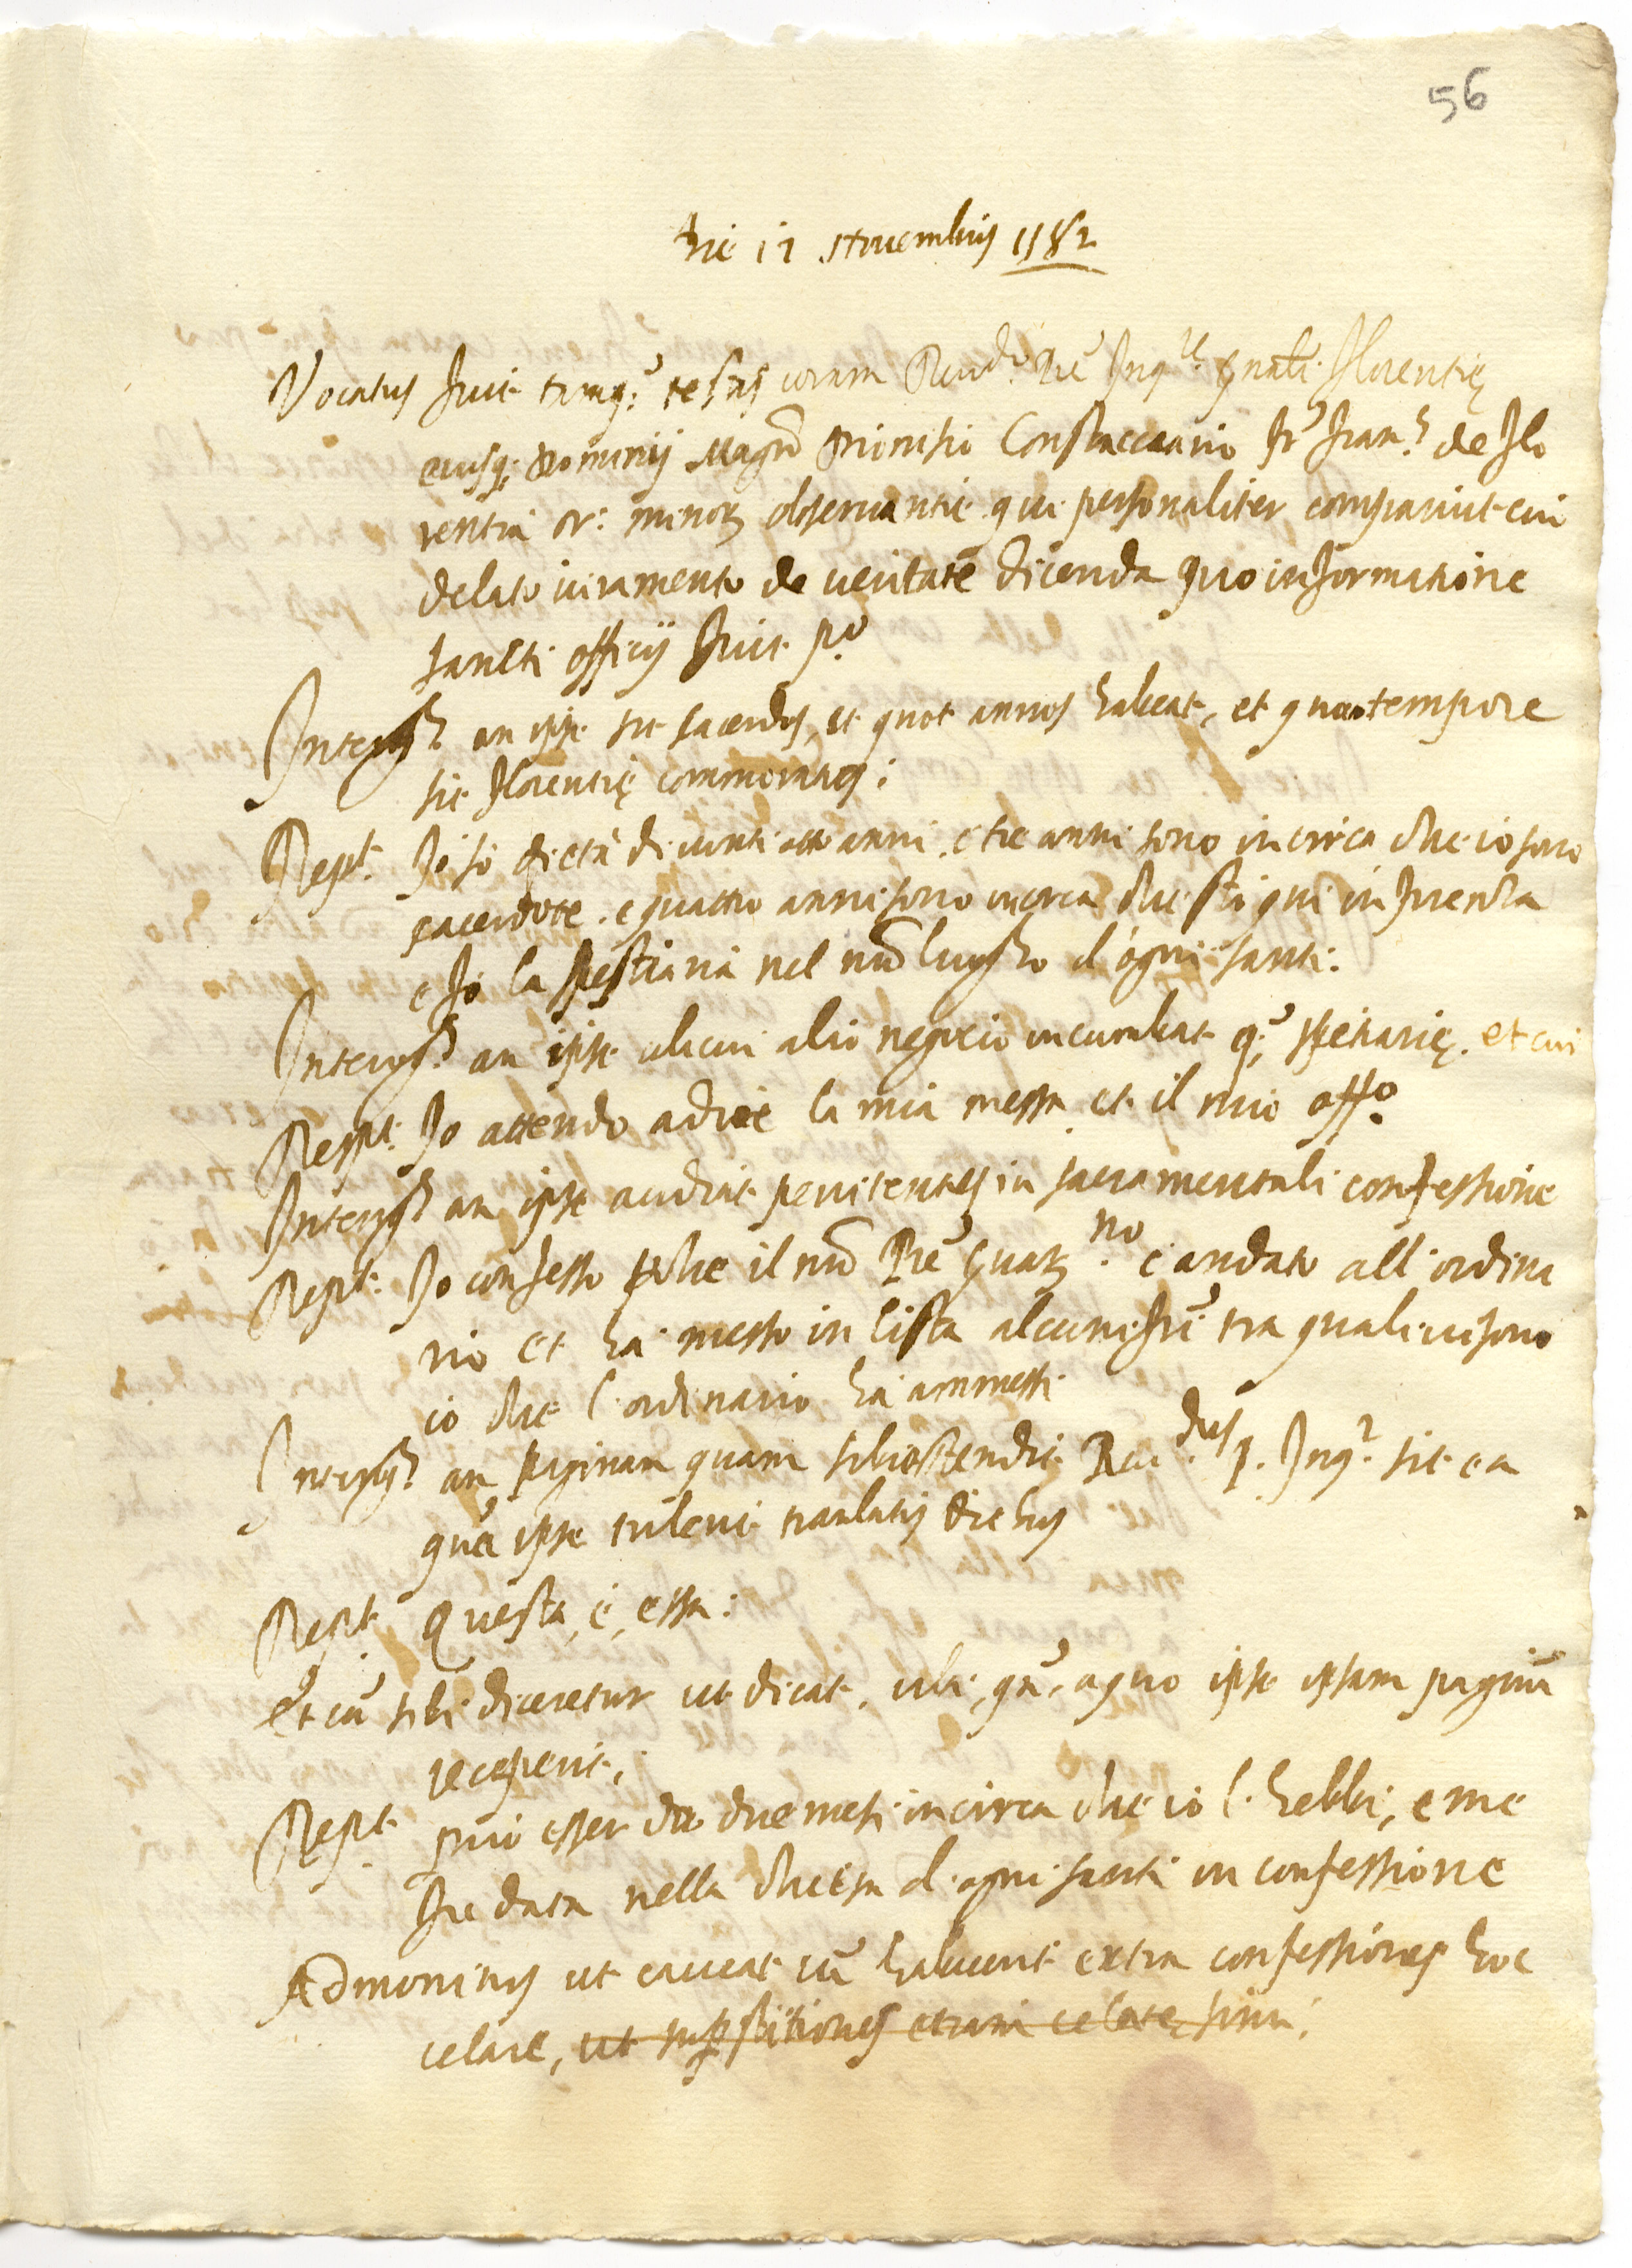 56
Die 12 Novembris 1582
Vocatus fuit tamq; testis coram Reud.º Pre Inq.re gnãli Florentię
eiusq; Dominij Magrõ Dionisio Constacciario fr Fran.s de Flo
rentia or: minoꝝ obseruantie qui personaliter comparuit cui
delato iuramento de ueritate dicenda pro informatione
sancti officij fuit p.º
Interog.s an ipse sit sacerdos, et quot annos habeat, et quo tempore
sit Florentię commoratus;
Respt. Io so dietà di uinti otto anni. e tre anni sono in circa che io sono
sacerdote. e quattro anni sono incirca che sto qui in Firenza
e fo la spetiaria nel nrõ luogho d'ogni santi:
Interog.s an ipse alicui alio negocio incumbat q; spetiarię. et cui
Respt. Io attendo a dire la mia messa et il mio offº.
Interog.s an ipse audiat penitentes in sacramentali confessione
Respt. Io confesso che il nrõ Pre Guar.no è andato all'ordina
rio et ha messo in lista alcuni fri tra quali ui sono
io che l'ordinario ha ammessi
Interog.s an paginam quam sibi ostendit Reu.dus p. Inq.r sit ea
quã ipse tulerit tranlatis diebus
Respt. Questa, è, essa:
Et cũ sibi diceretur ut dicat. ubi, qñ, a quo ipse ipsam paginã
receperit;
Respt. puo esser da due mesi in circa che io l'hebbi, e me
fu data nella chiesa d'ogni santi in confessione
Admonitus ut caueat cũ habuerit extra confessiones hoc
celare, ut suꝑstitiones etiam celare